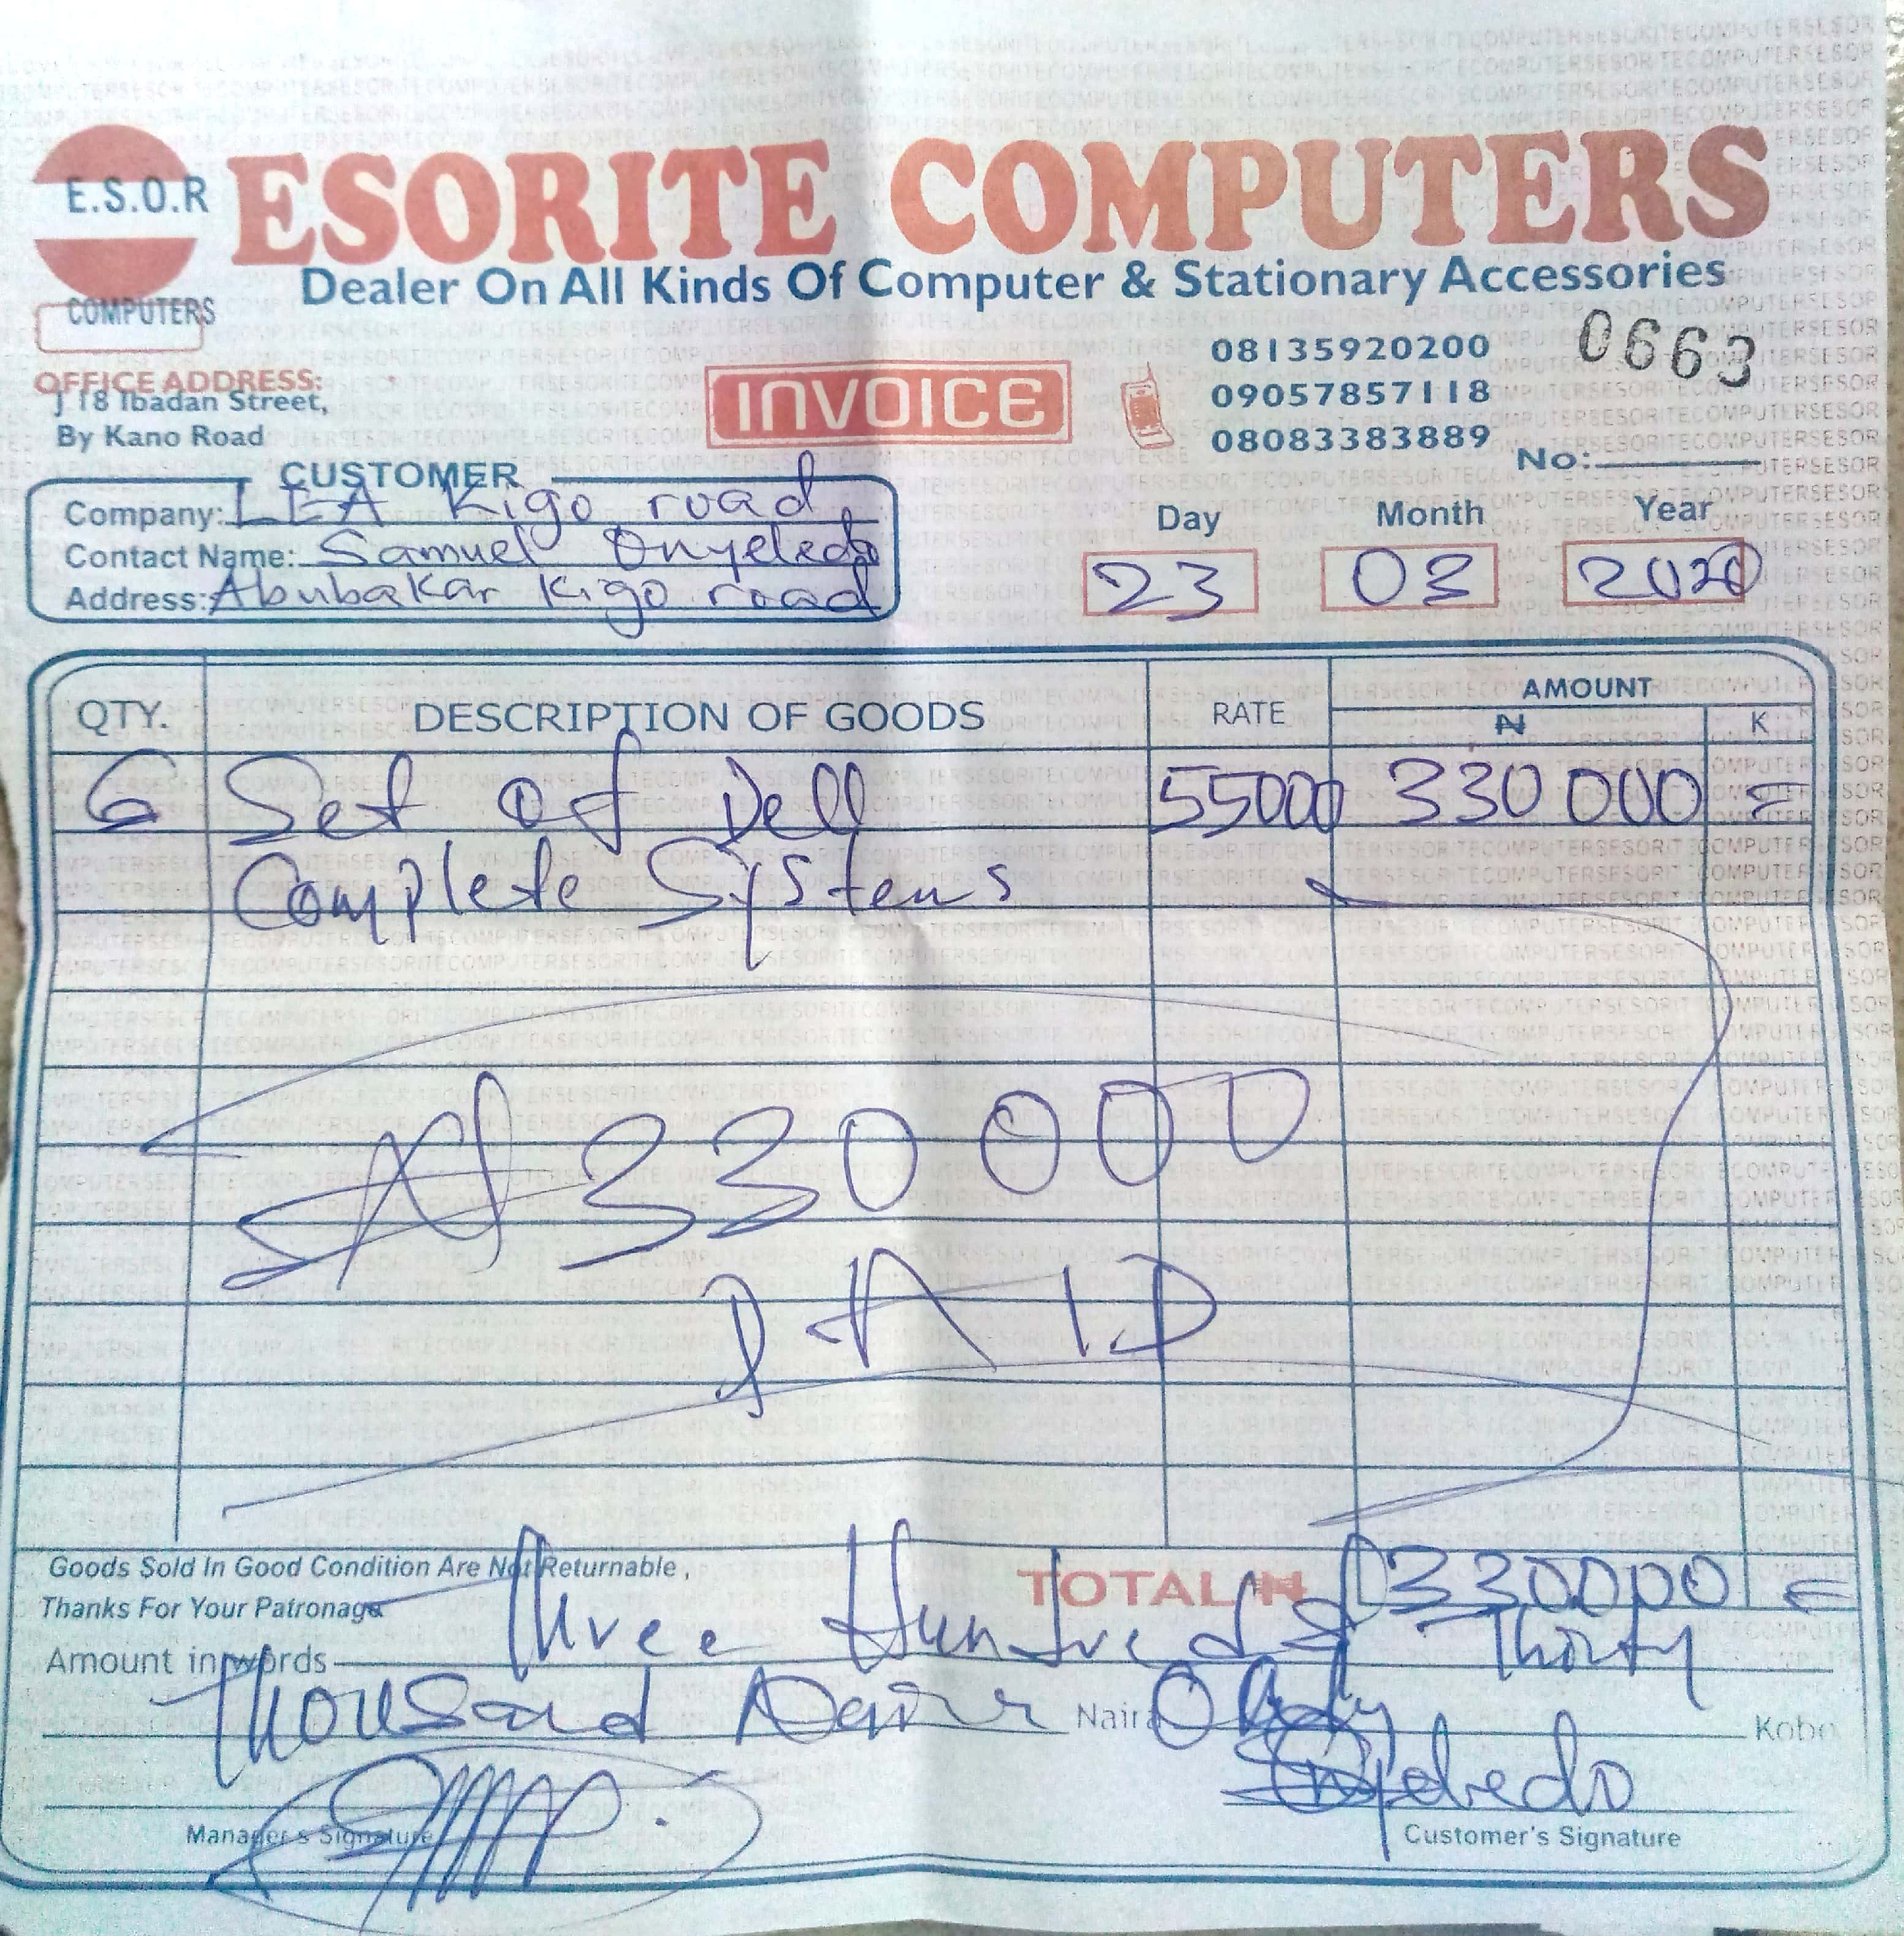 E.S.O.R
COMPUTERS
ESORITE COMPUTERS
Dealer On All Kinds Of Computer & Stationary Accessories
OFFICE ADDRESS:
J 18 Ibadan Street,
By Kano Road
INVOICE
08135920200
09057857118
08083383889
0663
No:
CUSTOMER
Company: LEA Kigo road
Contact Name: Samuel
Address: Abubakar Kigo road
Day Month Year
23 03 2020
QTY. DESCRIPTION OF GOODS RATE AMOUNT
₦ K
6 Set of Dell 55000 330 000 =
Complete Systems
₦ 330 000
PAID
Goods Sold In Good Condition Are Not Returnable,
Thanks For Your Patronage
TOTAL ₦ 330000 =
Amount in words Three Hundred & Thirty
Thousand Naira Naira Only Kobo
Manager's Signature
Customer's Signature